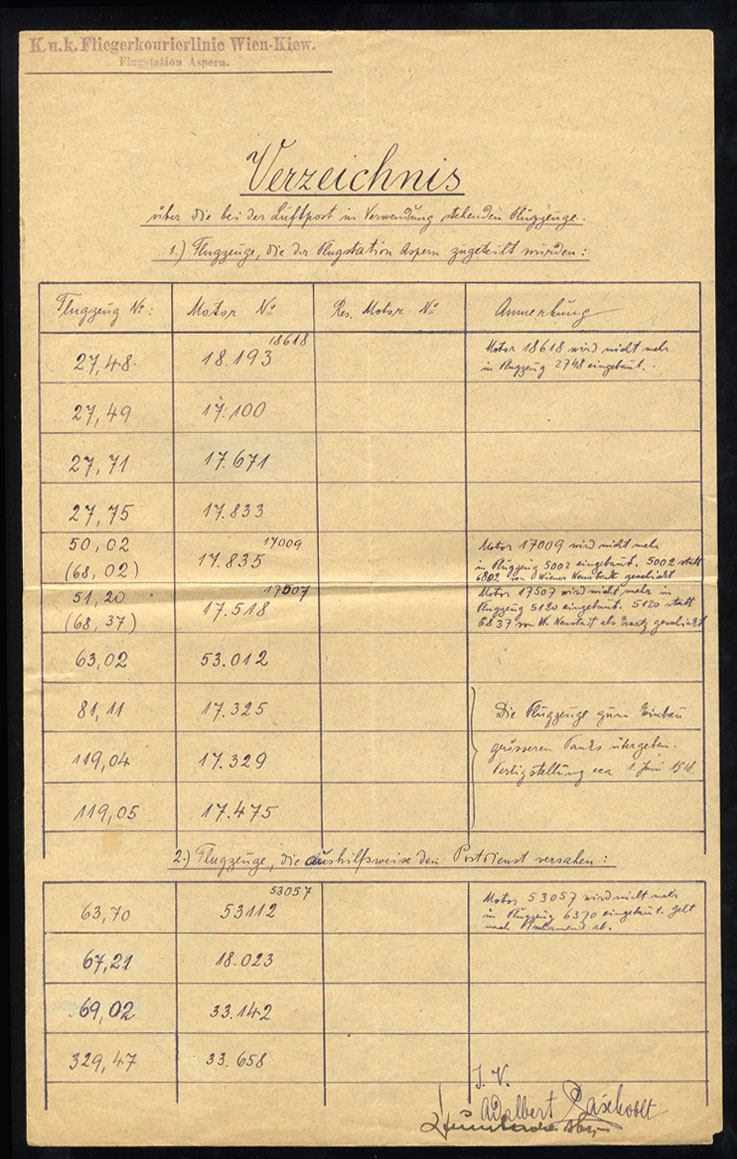 K.u.k. Fliegerkourierlinie Wien-Kiew.
Flugstation Aspern.
Verzeichnis
über die bei der Luftpost in Verwendung stehenden Flugzeuge.
1.) Flugzeuge, die der Flugstation Aspern zugeteilt wurden:
Flugzeug No: Motor No Res. Motor No Anmerkung
27,48. 18.193 18618 Motor 18618 wird nicht mehr
in Flugzeug 2748 eingebaut.
27,49 17.100
27,71 17.671
27,75 17.833
50,02 17009 Motor 17009 wird nicht mehr
(68,02) 17.835 in Flugzeug 5002 eingebaut. 5002 statt
6802 von Wiener Neustadt geschickt
51,20 17507 Motor 17507 wird nicht mehr in
(68,37) 17.518 Flugzeug 5120 eingebaut. 5120 statt
6837 von W. Neustadt als Ersatz geschickt
63,02 53.012
81,11 17.325 Die Flugzeuge zum Einbau
119,04 17.329 grösseren Tanks übergeben.
Fertigstellung cca 1. Juni
119,05 17.475
2.) Flugzeuge, die aushilfsweise den Postdienst versahen:
63,70 53112 53057 Motor 53057 wird nicht mehr
in Flugzeug 6370 eingebaut. Geht
nach ab.
67,21 18.023
69,02 33.142
329,47 33.658
J.V.
Adalbert